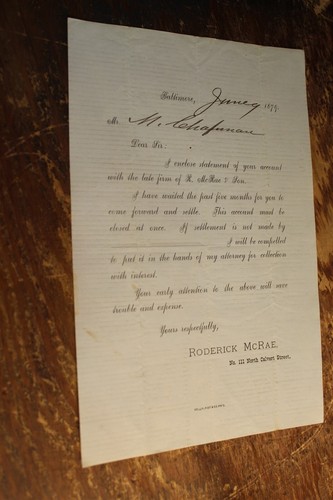 Baltimore, June 9 1879.
Mr. M. Chapman
Dear Sir:
I enclose statement of your account
with the late firm of R. McRae & Son.
I have waited the past five months for you to
come forward and settle. This account must be
closed at once. If settlement is not made by
I will be compelled
to put it in the hands of my attorney for collection
with interest.
Your early attention to the above will save
trouble and expense.
Yours respectfully,
RODERICK McRAE,
No. 111 North Calvert Street.